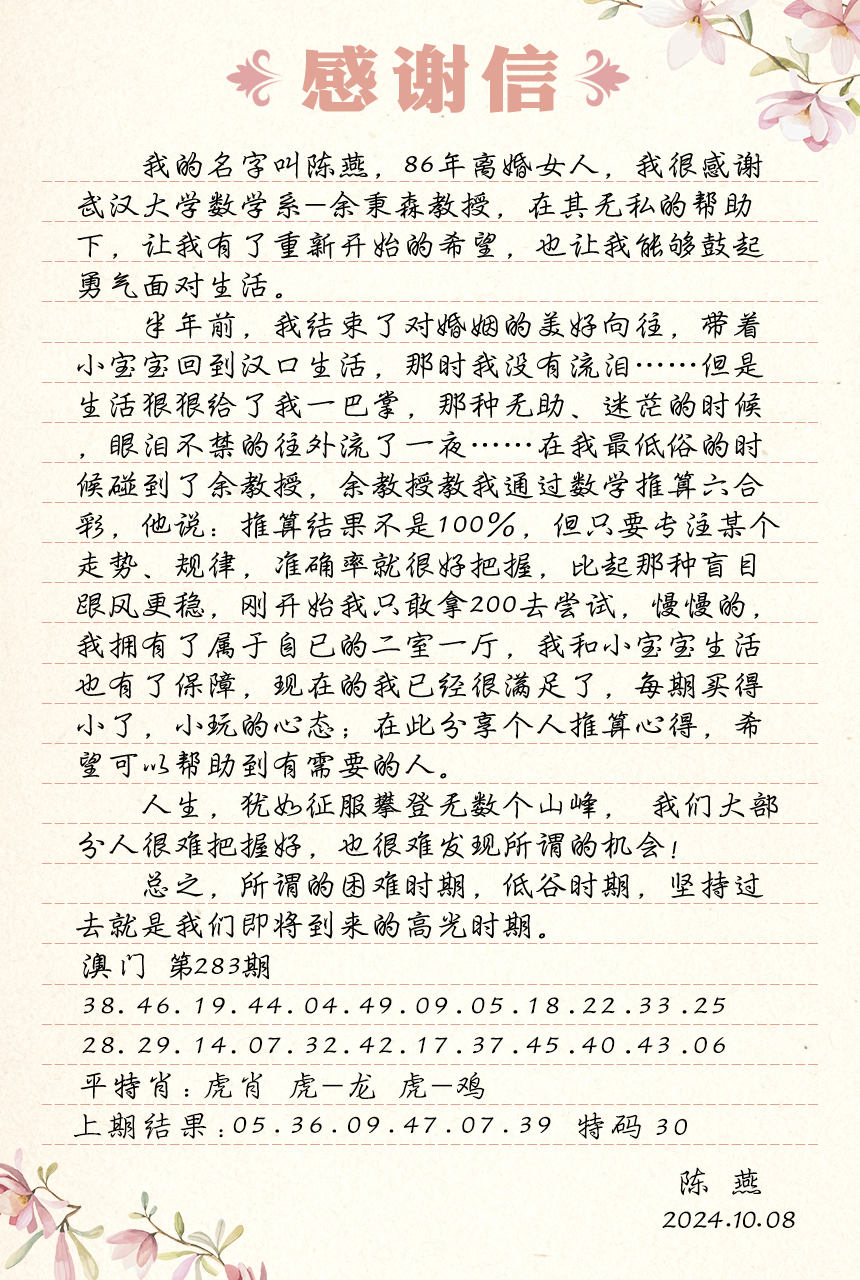 感谢信
我的名字叫陈燕，86年离婚女人，我很感谢
武汉大学数学系—余秉森教授，在其无私的帮助
下，让我有了重新开始的希望，也让我能够鼓起
勇气面对生活。
半年前，我结束了对婚姻的美好向往，带着
小宝宝回到汉口生活，那时我没有流泪……但是
生活狠狠给了我一巴掌，那种无助、迷茫的时候
，眼泪不禁的往外流了一夜……在我最低俗的时
候碰到了余教授，余教授教我通过数学推算六合
彩，他说：推算结果不是100%，但只要专注某个
走势、规律，准确率就很好把握，比起那种盲目
跟风更稳，刚开始我只敢拿200去尝试，慢慢的，
我拥有了属于自已的二室一厅，我和小宝宝生活
也有了保障，现在的我已经很满足了，每期买得
小了，小玩的心态；在此分享个人推算心得，希
望可以帮助到有需要的人。
人生，犹如征服攀登无数个山峰， 我们大部
分人很难把握好，也很难发现所谓的机会！
总之，所谓的困难时期，低谷时期，坚持过
去就是我们即将到来的高光时期。
澳门 第283期
38.46.19.44.04.49.09.05.18.22.33.25
28.29.14.07.32.42.17.37.45.40.43.06
平特肖：虎肖 虎—龙 虎—鸡
上期结果：05.36.09.47.07.39 特码 30
陈 燕
2024.10.08